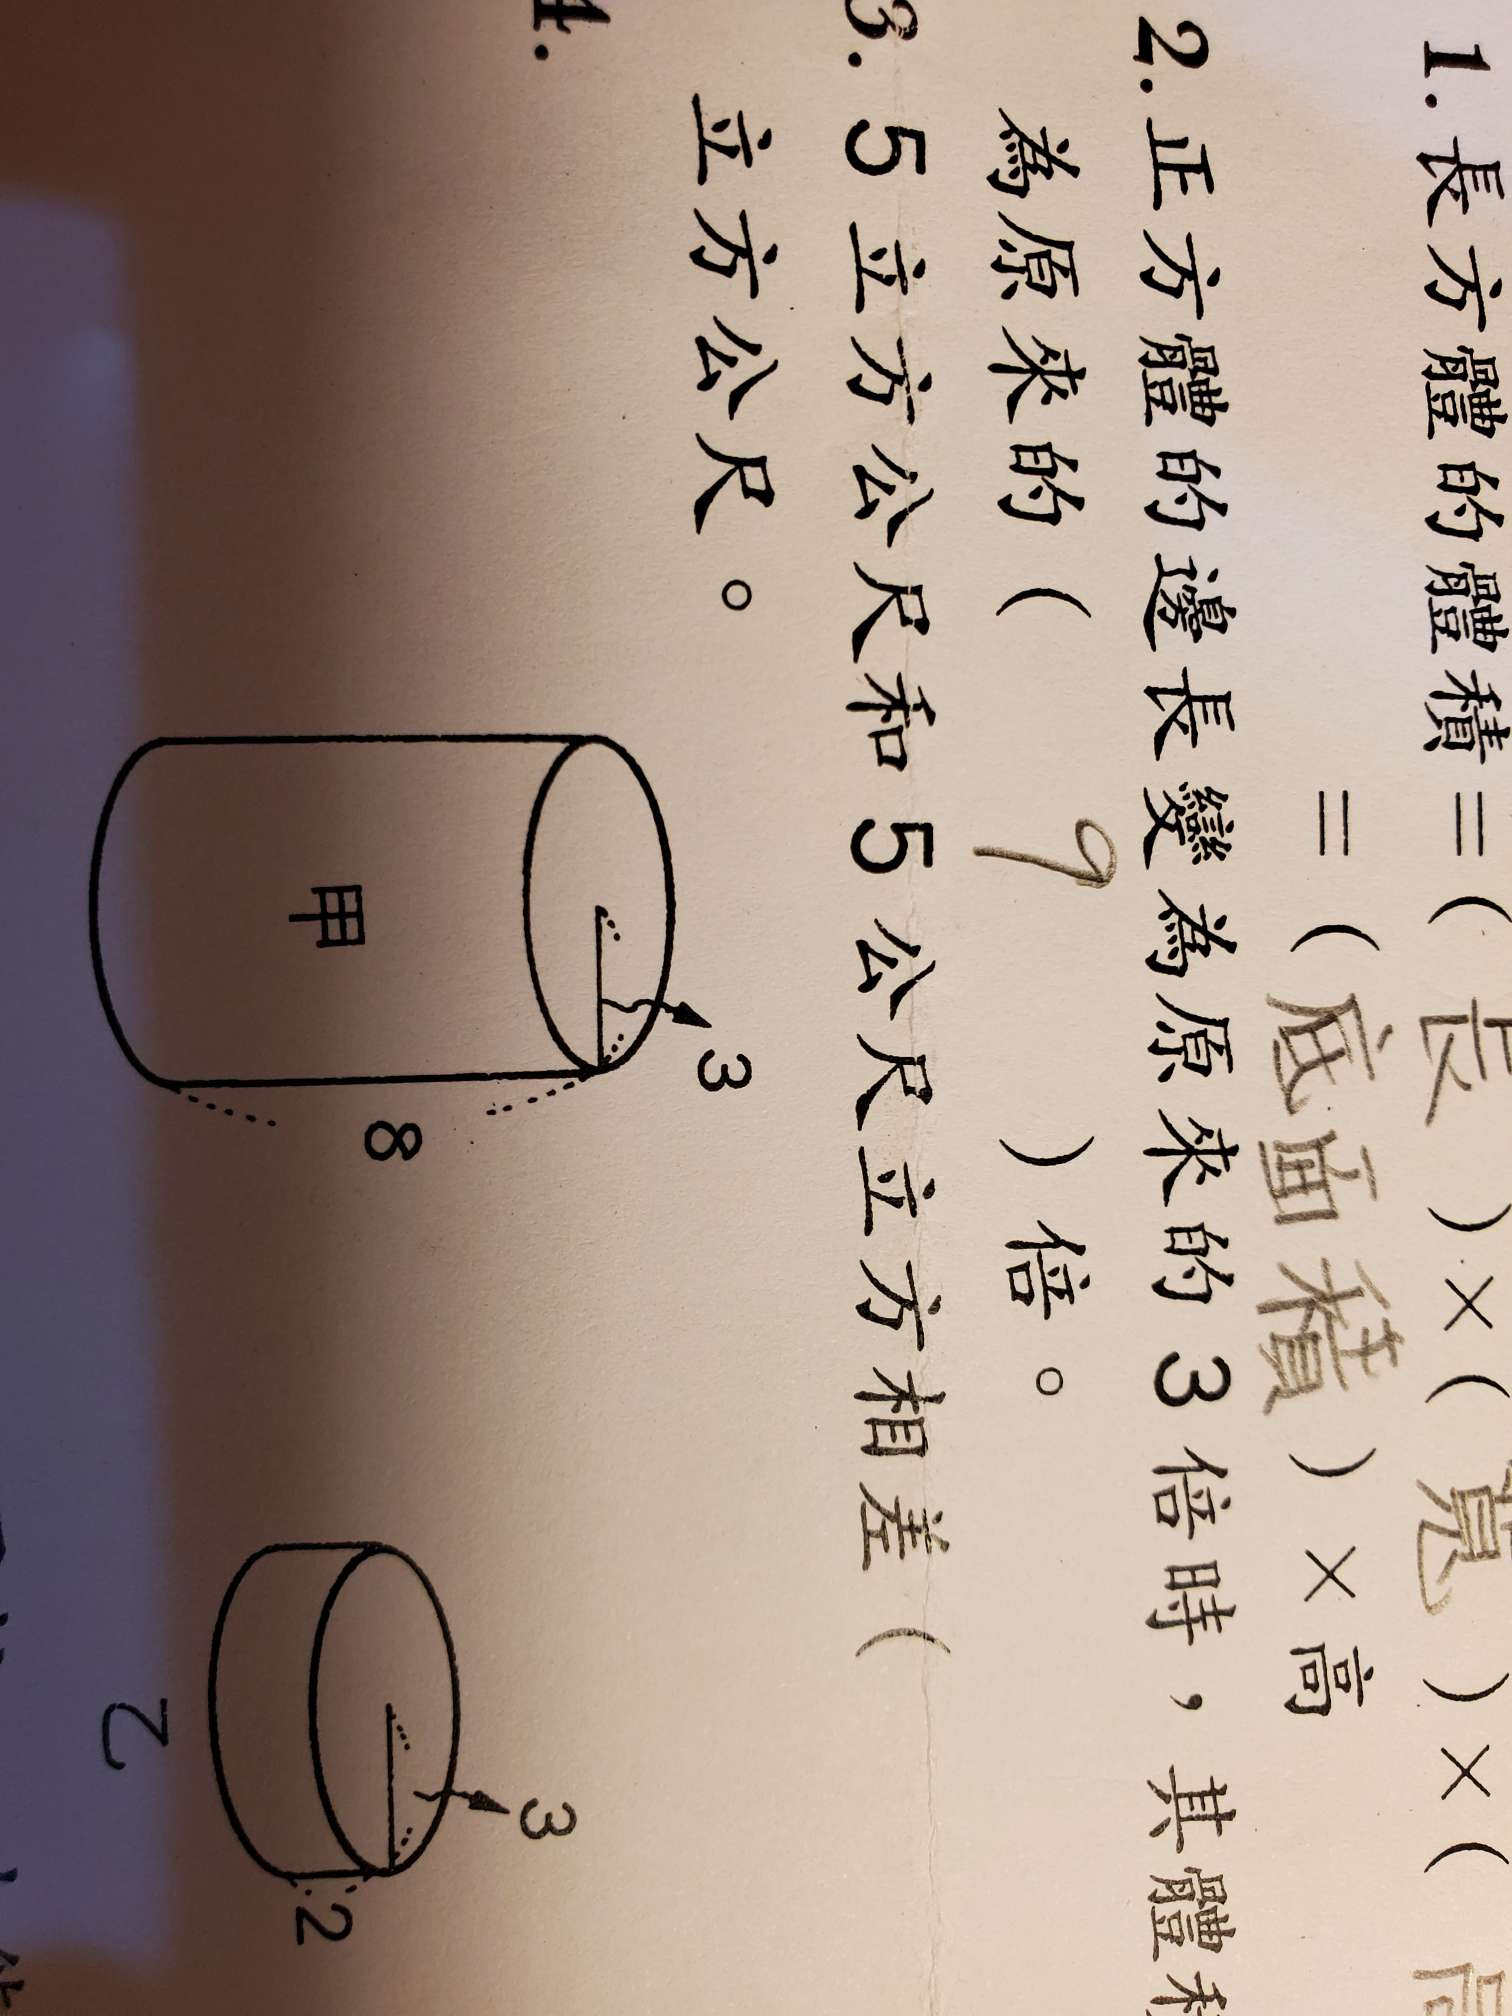 1.長方體的體積=(長)×(寬)×(高
=(底面積)×高
2.正方體的邊長變為原來的3倍時,其體積
為原來的(9)倍。
3.5立方公尺和5公尺立方相差(
立方公尺。
4.
3
甲
8
3
2
乙